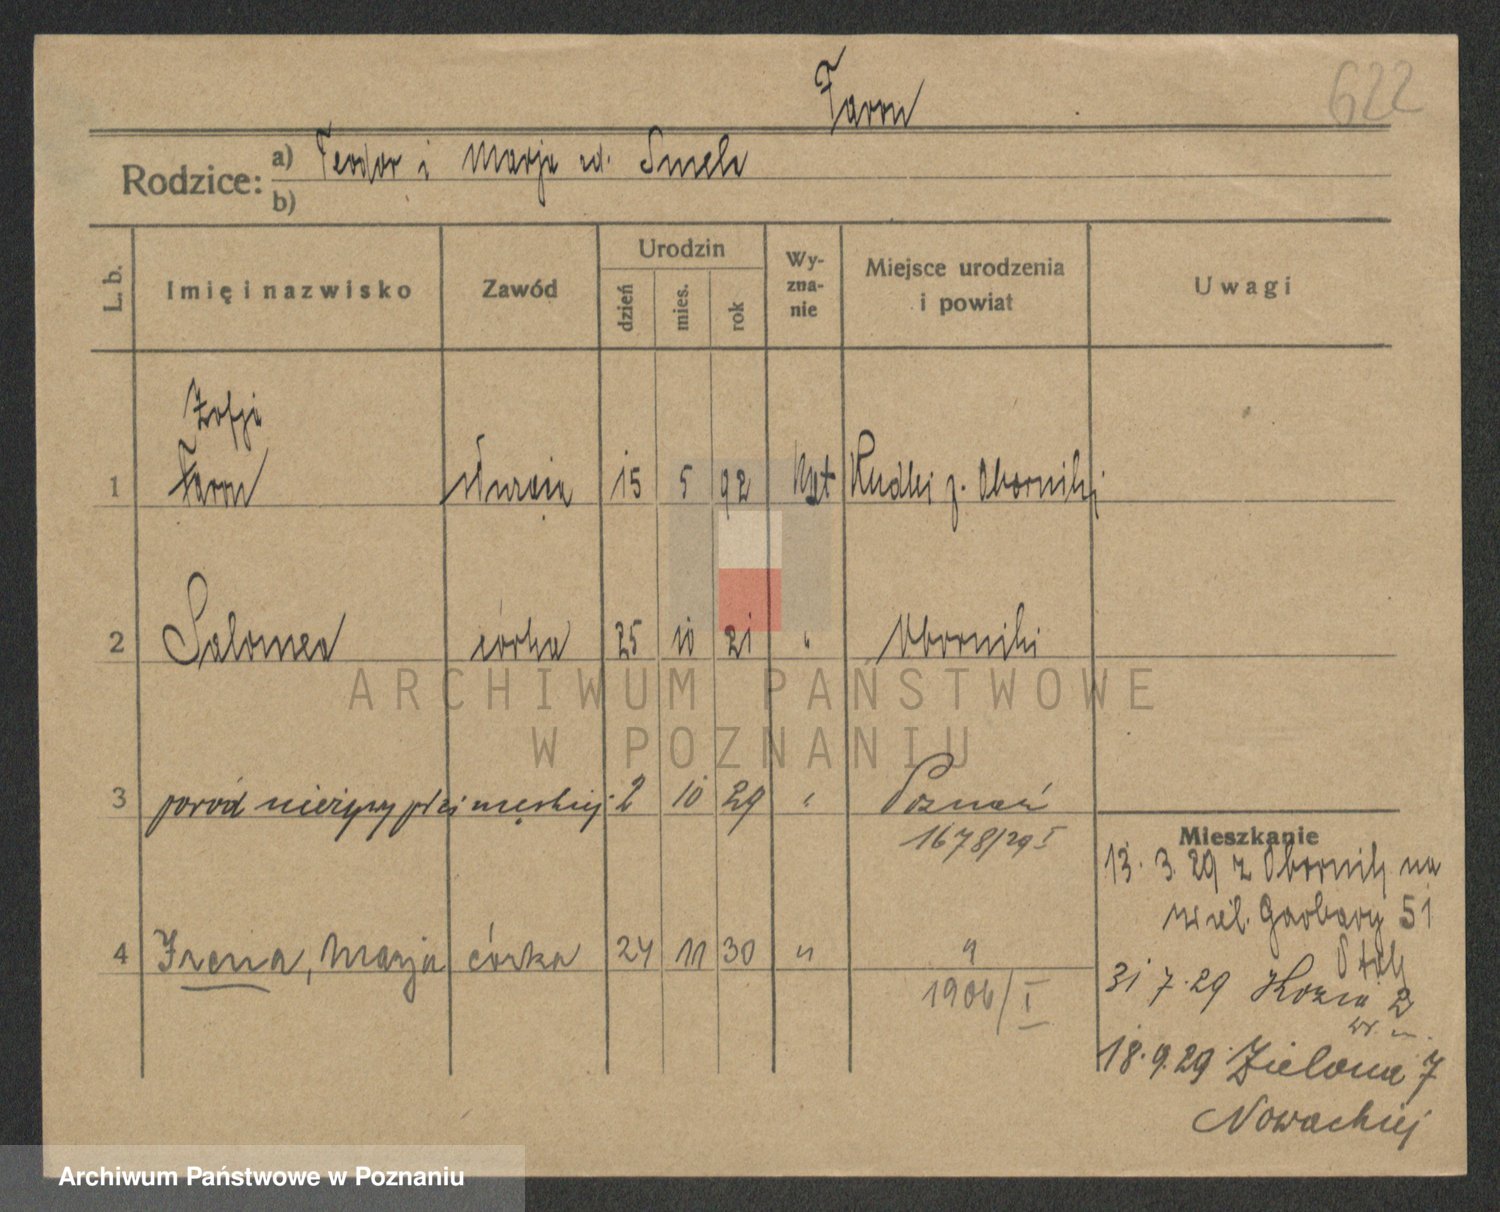 622
Faron
Rodzice: a) Teodor i Marja ud. Smele
b)
L. b. Imię i nazwisko Zawód Urodzin dzień mies. rok Wyznanie Miejsce urodzenia i powiat Uwagi
Zofji
1 Faron 15 5 92 kat p. Oborniki
2 Salomea córka 25 10 21 " Oborniki
3 poród nieżywy płci męskiej 2 10 29 " Poznań
1678/29 I
4 Irena, Marja córka 24 11 30 " "
1906/I
Mieszkanie
13. 3. 29 z Obornik na
Garbary 51
31 7. 29 Kozia 2
18. 9. 29 Zielona 7
Nowackiej
ARCHIWUM PAŃSTWOWE
W POZNANIU
Archiwum Państwowe w Poznaniu